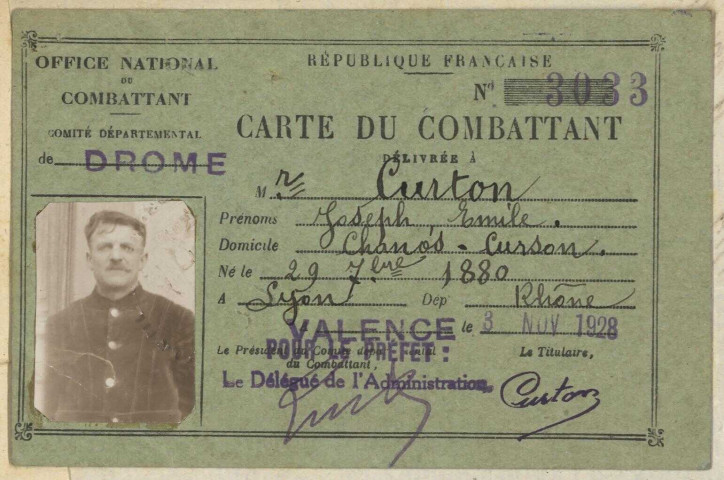 OFFICE NATIONAL
DU
COMBATTANT
COMITÉ DÉPARTEMENTAL
de DROME
RÉPUBLIQUE FRANÇAISE
Nº 3033
CARTE DU COMBATTANT
DÉLIVRÉE À
M r Curton
Prénoms Joseph, Emile.
Domicile Chanos-Curson.
Né le 29 7bre 1880
A Lyon Dep Rhône
A VALENCE le 3 NOV 1928
Le Président du Comité départemental
du Combattant,
POUR LE PRÉFET:
Le Délégué de l'Administration,
Le Titulaire,
Curton